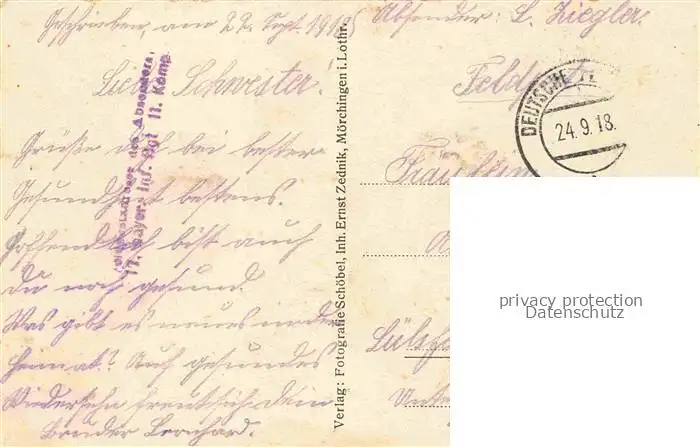 Geschrieben, am 22. Sept. 1918
Liebe Schwester!
Grüße dich bei bester
Gesundheit bestens.
Hoffentlich bist auch
Du noch gesund.
Was gibt es neues in der
Heimat? Auf gesundes
Wiedersehn freut sich dein
Bruder Leonhard.
des Absenders
Bayer. Inf. Rgt 11. Komp.
Verlag: Fotografie Schöbel, Inh. Ernst Zednik, Mörchingen i. Lothr.
Absender: L. Ziegler.
DEUTSCHE
24.9.18.
Fräulein
privacy protection
Datenschutz